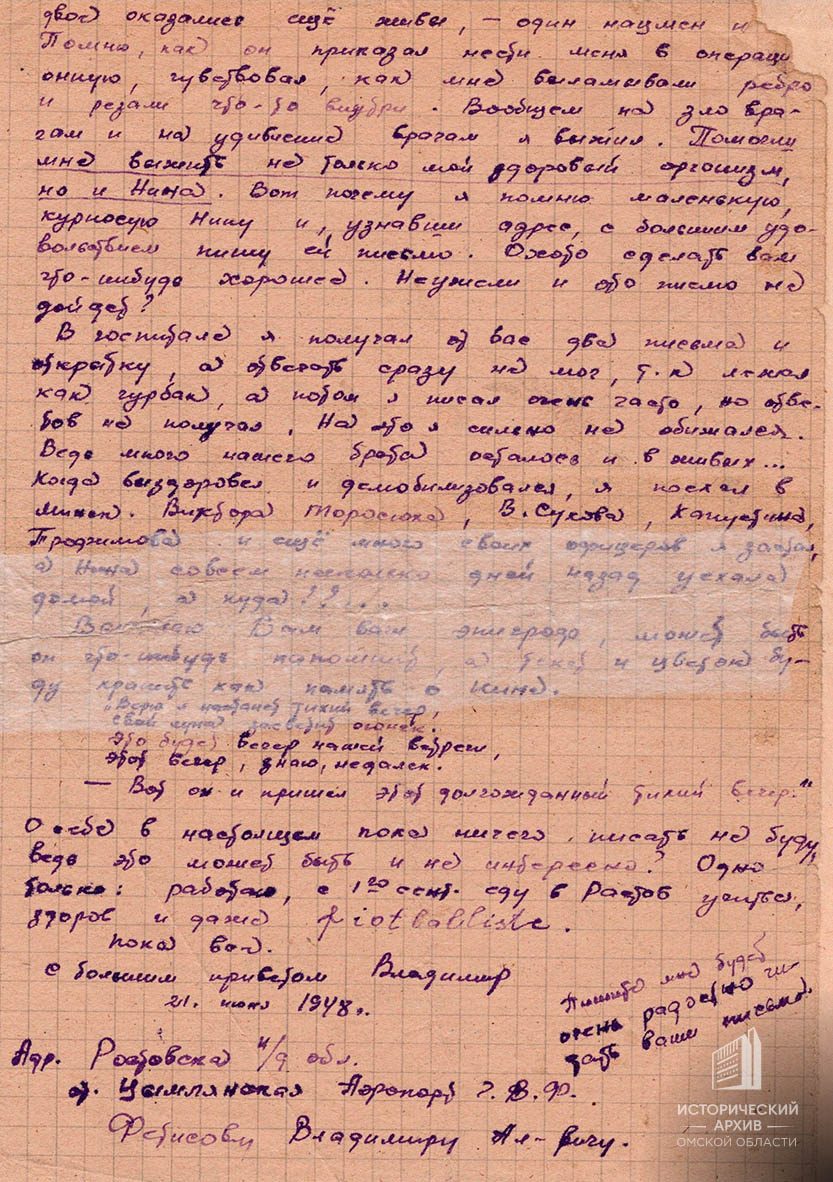 двое оказались ещё живы, — один нацмен и
Помню, как он приказал нести меня в операци
онную, чувствовал, как мне выламывали ребро
и резали что-то внутри. Вообщем на зло вра-
гам и на удивление врачам я выжил. Помогли
мне выжить не только мой здоровый организм,
но и Нина. Вот почему я помню маленькую,
курносую Нину и, узнавши адрес, с большим удо-
вольствием пишу ей письмо. Охото сделать вам
что-нибудь хорошее. Неужели и это писмо не
дойдет?
В госпитале я получал от вас два письма и
открытку, а отвечать сразу не мог, т.к лежал
как чурбак, а потом я писал очень часто, но отве-
тов не получал, На это я сильно не обижался.
Ведь много нашего брата осталось и в живых...
Когда выздоровел и демобилизовался, я поехал в
Минск. Виктора Торосюка, В. Сухова, Капустина,
и ещё много своих офицеров я застал,
а Нина совсем несколько дней назад уехала
домой, а куда??...
Вам ваш эпиграф, может быть
он что-нибудь напомнит, а текст и цветок бу-
ду хранить как память о Нине.
"Верю я настанет тихий вечер,
засветит огонёк.
Это будет вечер нашей встречи,
этот вечер, знаю, недалек.
— Вот он и пришел этот долгожданный тихий вечер."
О себе в настоящем пока ничего писать не буду,
ведь это может быть и не интересно? Одно
только: работаю, с 1го сент. еду в Ростов учиться,
здоров и даже
Пока всё.
С большим приветом Владимир
21. 1948г.
Пишите мне будет
очень радостно чи-
тать ваши письма.
Адр. Ростовска н/д обл.
ст. Цымлянская Аэропорт Г.В.Ф.
Фетисову Владимиру Ал-вичу.
ИСТОРИЧЕСКИЙ
АРХИВ
ОМСКОЙ ОБЛАСТИ